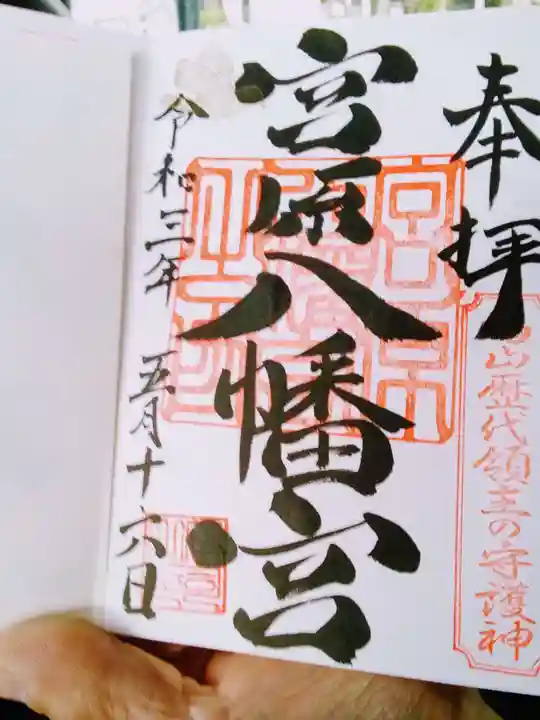 奉拝
山歴代領主の守護神
宮原八幡宮
令和三年 五月十六日